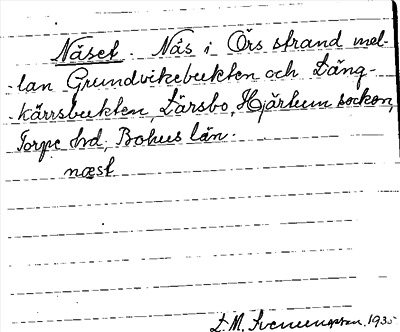 Näset. Näs i Örs strand mel-
-lan Grundvikebukten och Läng-
-kärrsbukten, Lärsbo, Hjärtum socken,
Torpe hd, Bohus län.
næst
L. M. Svenungsson. 1935